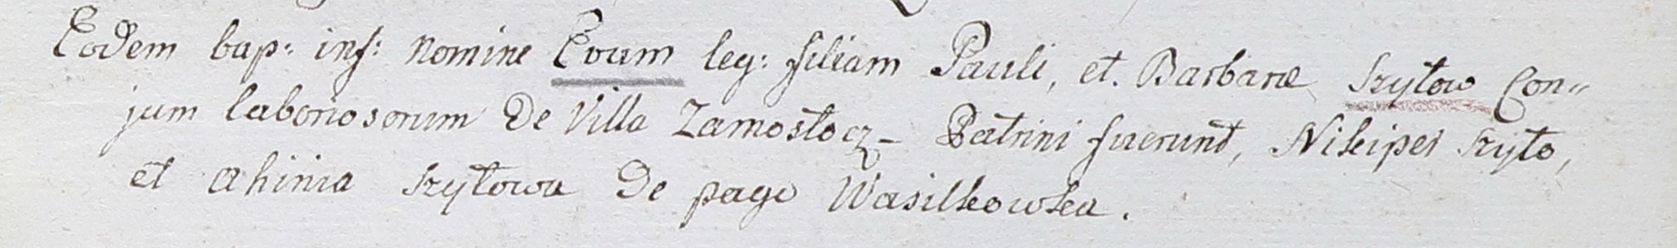 Eodem bap: inf: nomine Evam leg: filiam Pauli, et. Barbaræ Szyłow Con„
jum laboriosorum De Villa Zamostocz_ Patrini fuerunt, Nikiper Szyło,
et Ahinia Szyłowa De pago Wasilkowka.